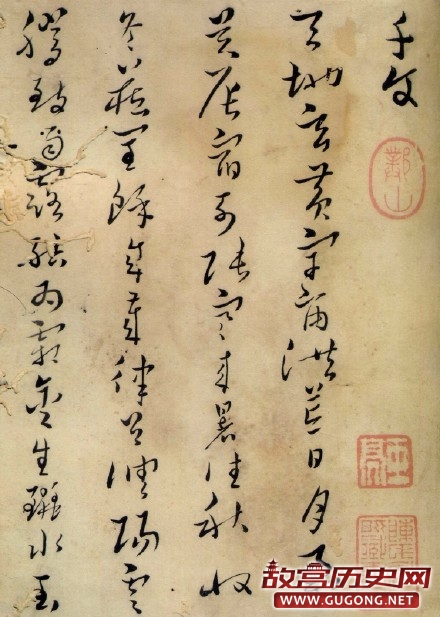 千文
天地玄黃宇宙洪荒日月盈
昃辰宿列張寒來暑往秋收
冬藏閏餘成歲律呂調陽雲
騰致雨露結為霜金生麗水玉
故宫历史网
WWW.GUGONG.NET